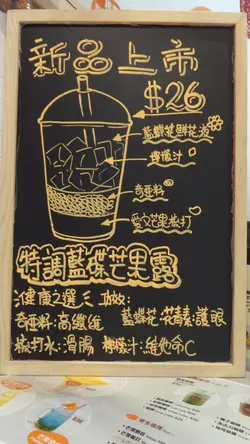 新品上市
$26
藍蝶花鮮花浸
檸檬汁
奇亞籽
愛文芒果梳打
特調藍碟芒果露
健康之選 功效:
奇亞籽:高纖維 藍蝶花:花青素:護眼
梳打水:滑腸 檸檬汁:維他命C